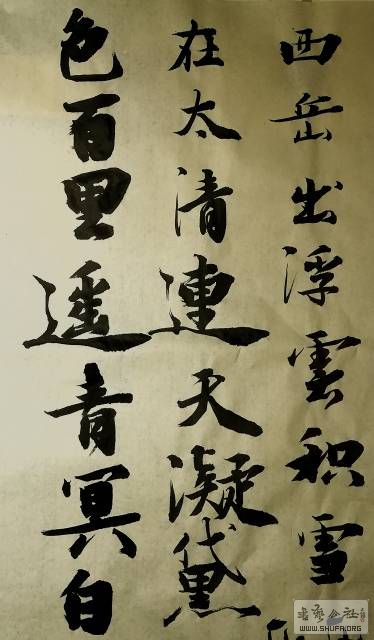 西岳出浮雲积雪
在太清連天凝黛
色百里遥青冥白
書艺公社
WWW.SHUFA.ORG